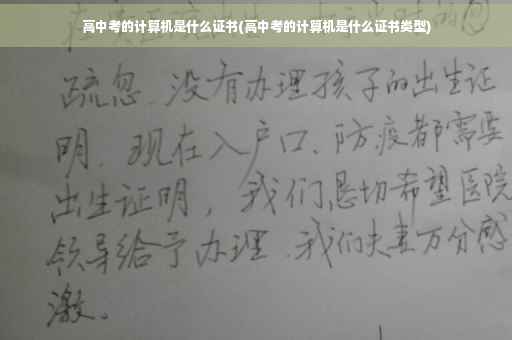 高中考的计算机是什么证书(高中考的计算机是什么证书类型)
疏忽、没有办理孩子的出生证
明、现在入户口、防疫都需要
出生证明，我们恳切希望医院
领导给予办理、我们夫妻万分感
激。